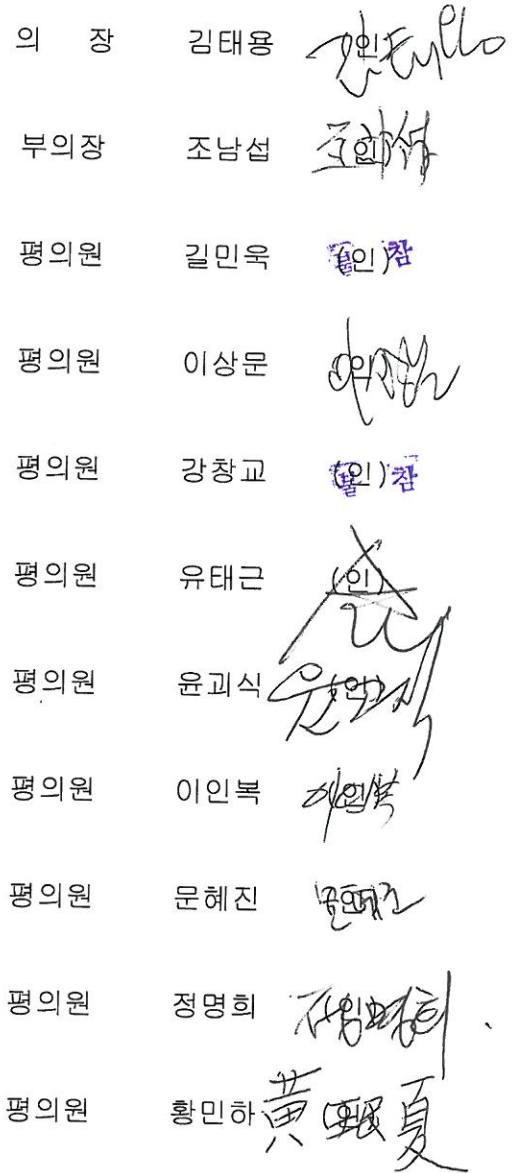 의 장 김태용 (인)
부의장 조남섭 (인) 조남섭
평의원 길민욱 (인) 불참
평의원 이상문 (인)
평의원 강창교 (인) 불참
평의원 유태근 (인)
평의원 윤괴식 (인) 윤괴식
평의원 이인복 (인) 이인복
평의원 문혜진 (인) 문혜진
평의원 정명희 (인) 정명희
평의원 황민하 (인) 黃珉夏